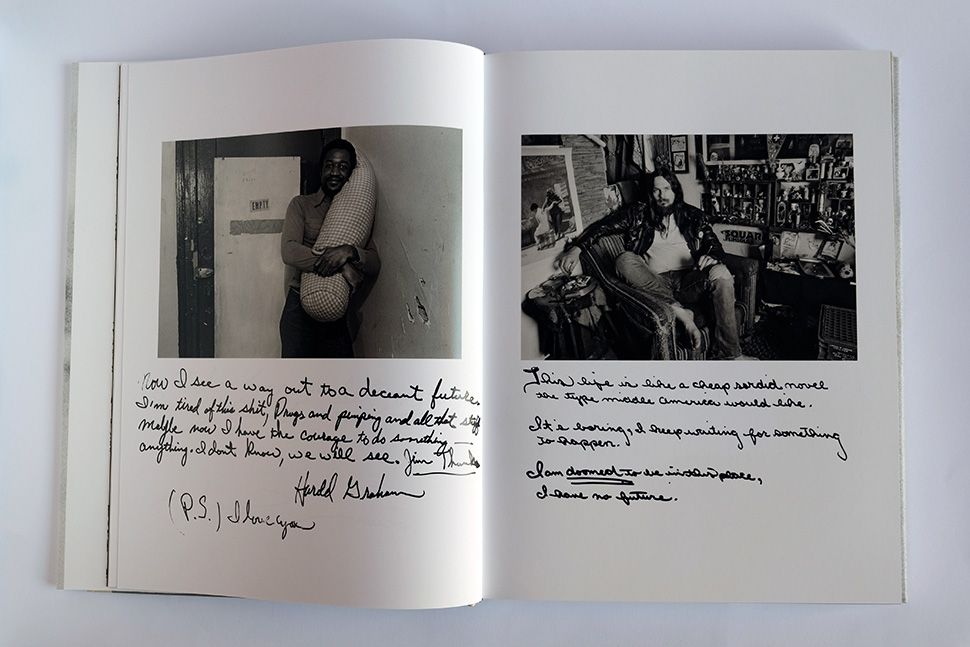 EMPTY
Now I see a way out to a deceant future.
I'm tired of this shit, Drugs and pimping and all that stuff
Maybe now I have the courage to do somthing
anything. I dont know, we will see. Jim Thanks
Harold Graham
(P.S.) I love you
SQUAR
This life is like a cheap sordid novel
the type middle America would like.
It's boring, I keep writing for something
to happen.
I am doomed to die in this place,
I have no future.